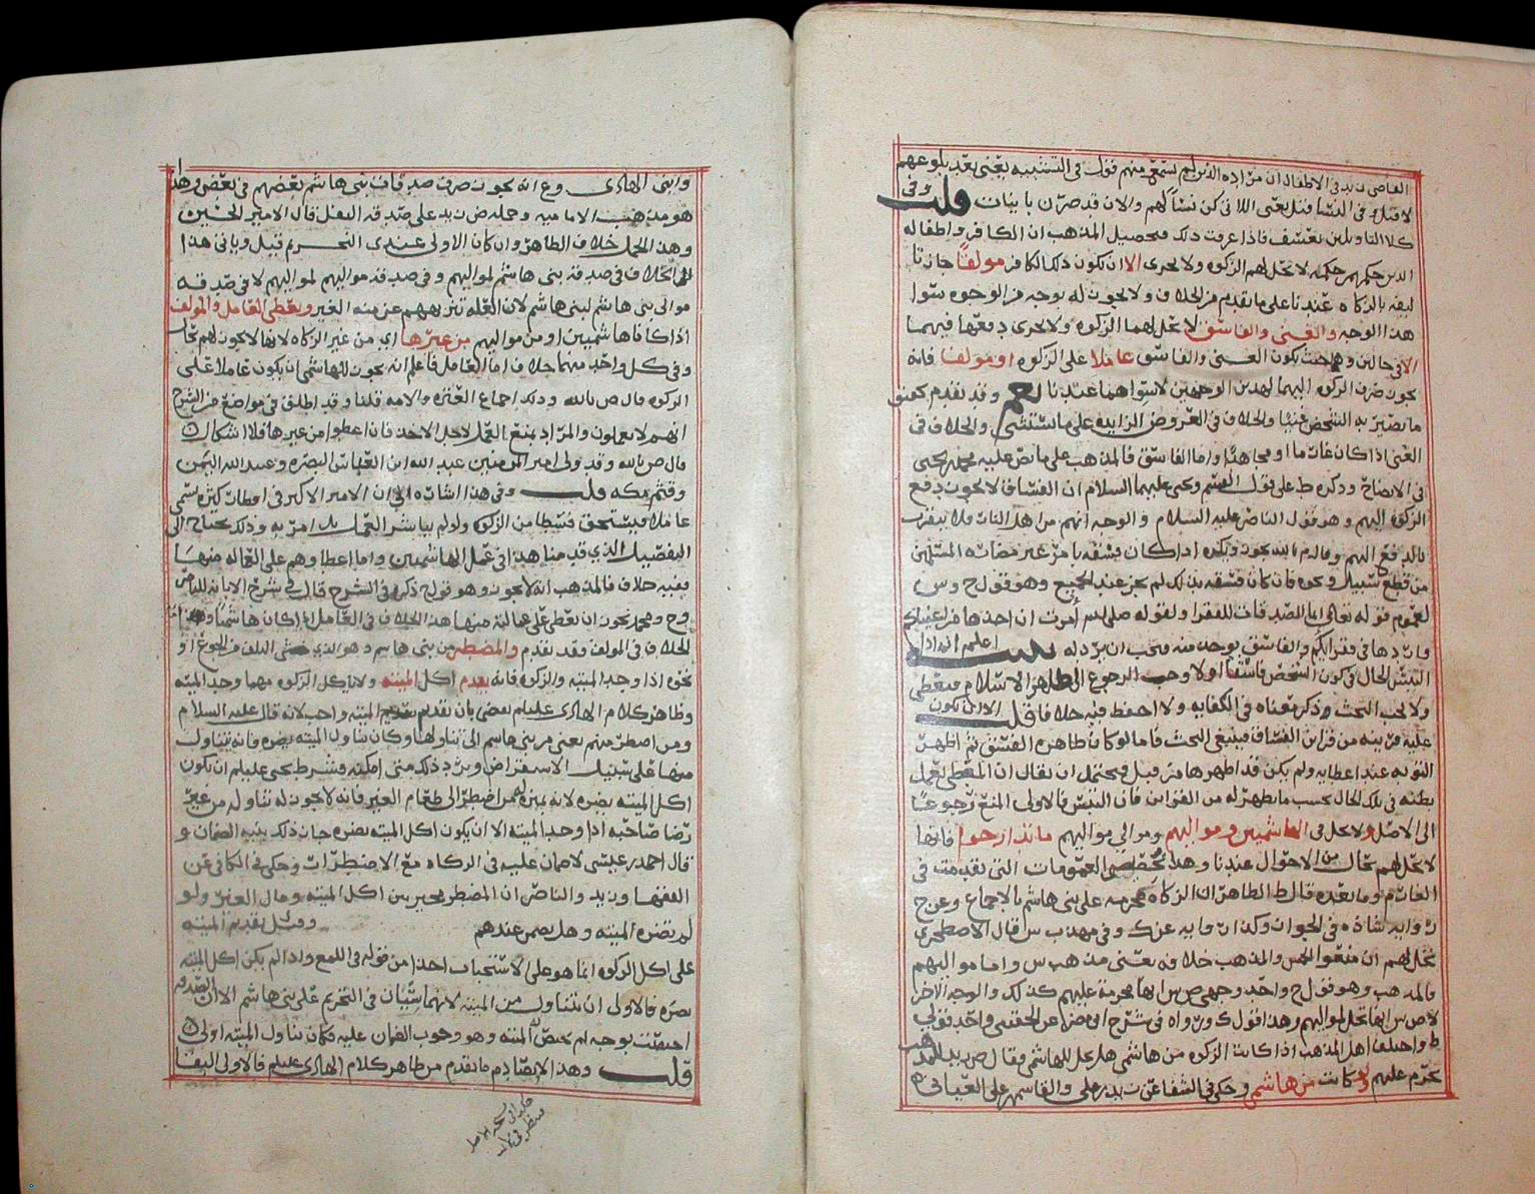 القاضي زيد في الاطفال ان مراده الذين لم يسمع منهم قول في التشبيه يعني بعد بلوغهم
لا قبل وفي النسا قيل يعني اللاتي كن نسا لهم والا فقد صرن بايبات قلت وفي
كلا التاويلين تعسف فاذا عرفت ذلك فتحصيل المذهب ان الكافر واطفاله
الذين حكمهم حكمه لا تحل لهم الزكوه ولا تجزى الا ان يكون ذلك الكافر مولفا جاز تا
ليفه بالزكاه عندنا على ما تقدم من الخلاف ولا يجوز له بوجه من الوجوه سوا
هذا الوجه والغني والفاسق لا تحل لهما الزكوه ولا تجزى دفعها فيهما
الا في حالين وهما حيث يكون الغني والفاسق عاملا على الزكوه او مولفا فانه
يجوز صرف الزكوه اليهما لهذين الوجهين لاستواهما عندنا نعم وقد تقدم
ما يصير به الشخص غنيا والخلاف في العروض الزايده على ما يستثنى والخلاف في
الغني اذا كان غارما او مجاهدا واما الفاسق فالمذهب على ما نص عليه محمد بن يحيى
في الايضاح وذكره ط على قول القسم ويحيى عليهما السلام ان الفساق لا يجوز دفع
الزكوه اليهم وهو قول الناصر عليه السلام والوجه انهم من اهل النار فلا يتقرب
بالدفع اليهم وقال م بالله يجوز ويكره اذا كان فسقه بامر غير مضاره المسلمين
من قطع سبيل ونحوه فان كان فسقه بذلك لم يجز عند الجميع وهو قول ح وش
لعموم قوله تعالى انما الصدقات للفقرا ولقوله صلى الله امرت ان اخذها من اغنيائكم
واردها في فقرائكم والفاسق يوخذ منه فيجب ان يرد له تنبيه اعلم انه اذا
التبس الحال في كون الشخص فاسقا او لا وجب الرجوع الى ظاهر الاسلام فيعطى
ولا يجب البحث وذكر معناه في الكفايه ولا احفظ فيه خلافا قلت الا ان يكون
عليه قرينه من قراين الفساق فينبغي البحث فاما لو كان ظاهره الفسق ثم اظهر
التوبه عند اعطايه ولم يكن قد اظهرها من قبل فيحتمل ان يقال ان المعطي يعمل
بظنه في تلك الحال بحسب ما يظهر له من القراين فان التبس فالاولى المنع رجوعا
الى الاصل ولا تحل في الهاشميين ومواليهم وموالي مواليهم ما تدارجوا فانها
لا تحل لهم بحال من الاحوال عندنا وهذا مخصص العمومات التي تقدمت في
الغارم وما بعده قال ط الظاهر ان الزكاه محرمه على بني هاشم بالاجماع وعن ح
روايه شاذه في الجواز وكذا روايه عن ك وفي مهذب ش قال الاصطخري
تحل لهم ان منعوا الخمس والمذهب خلافه يعني مذهب ش واما مواليهم
فالمذهب وهو قول ح واحد وجهي ص ش انها محرمة عليهم كذلك والوجه الاخر
لاص ش انها تحل لمواليهم وهذا قول ك ورواه في شرح عن الحقيني واحد قولي
ط واختلف اهل المذهب اذا كانت الزكوه من هاشمي هل تحل للهاشمي فقال ص زيد المذهب
تحرم عليهم ولو كانت من هاشمي وحكي في الشفا عن زيد بن علي والقاسم وعلى العباني
وابني الهادي وع انه يجوز صرف صدقات بني هاشم بعضهم في بعض وهذا
هو مذهب الاماميه وحمله ص زيد على صدقه النفل قال الامير الحسين
وهذا الحمل خلاف الظاهر وان كان الاولى عندي التحريم قيل وياتي هذا
الخلاف في صدقه بني هاشم لمواليهم وفي صدقه مواليهم لمواليهم لا في صدقه
موالي بني هاشم لبني هاشم لان العله تنزيههم عن منه الغير ويعطى العامل والمولف
اذا كانا هاشميين او من مواليهم من غيرها اي من غير الزكاه لانها لا تجوز لهم بحال
وفي كل واحد منهما خلاف اما العامل فاعلم انه يجوز للهاشمي ان يكون عاملا على
الزكوه قال ص بالله وذلك اجماع العتره والامه قلنا وقد اطلق في مواضع من الشرح
انهم لا يعملون والمراد بمنع العمل لاجل الاخذ فان اعطوا من غيرها فلا اشكال
قال ص بالله وقد ولى امير المومنين عبد الله ابن العباس البصره وعبيد الله اليمن
وقثم مكه قلت وفي هذا اشاره الى ان الامير الاكبر في كثره يسمى
عاملا فيستحق قسطا من الزكوه ولو لم يباشر العمل بل امر به وذلك يحتاج الى
التفصيل الذي قدمنا هذا في عمل الهاشميين واما اعطاوهم على العماله منها
ففيه خلاف فالمذهب انه لا يجوز وهو قول ح ذكره في الشرح قال في شرح الابانه للناصر
وح ومحمد يجوز ان يعطى على عمالته منها هذا الخلاف في العامل اذا كان هاشميا واما
الخلاف في المولف فقد تقدم والمضطر من بني هاشم وهو الذي خشي التلف من الجوع او
نحوه اذا وجد الميته والزكوه فانه يقدم اكل الميته ولا ياكل الزكوه مهما وجد الميته
وظاهر كلام الهادي عليلم يقضي بان تقديم الميته واجب لانه قال عليه السلام
ومن اضطر منهم يعني من بني هاشم الى تناولها وكان تناول الميته يضره فانه يتناول
منها على سبيل الاستقراض ويرد ذلك متى امكنه فشرط يحيى عليلم ان يكون
اكل الميته يضره لانه بمنزله من اضطر الى طعام الغير فانه لا يجوز له تناوله من غير
رضا صاحبه اذا وجد الميته الا ان يكون اكل الميته يضره جاز ذلك بنيه الضمان و
قال احمد بن عيسى لا ضمان عليه في الزكاه مع الاضطرار وحكي في الكافي عن
الفقها وزيد والناصر ان المضطر مخير بين اكل الميته ومال الغير ولو
لم يضره الميته وهل يضمن عندهم وقيل تقديم الميته
على اكل الزكوه انما هو على الاستحباب اخذا من قوله في اللمع واذا لم يكن اكل الميته
يضره فالاولى ان يتناول من الميته لانهما سيان في التحريم على بني هاشم الا ان الصدقه
اختصت بوجه لم يختص الميته وهو وجوب الضمان عليه فكان تناول الميته اولى
قلت وهذا الايضا دم ما تقدم من ظاهر كلام الهادي عليلم فالاولى البقا